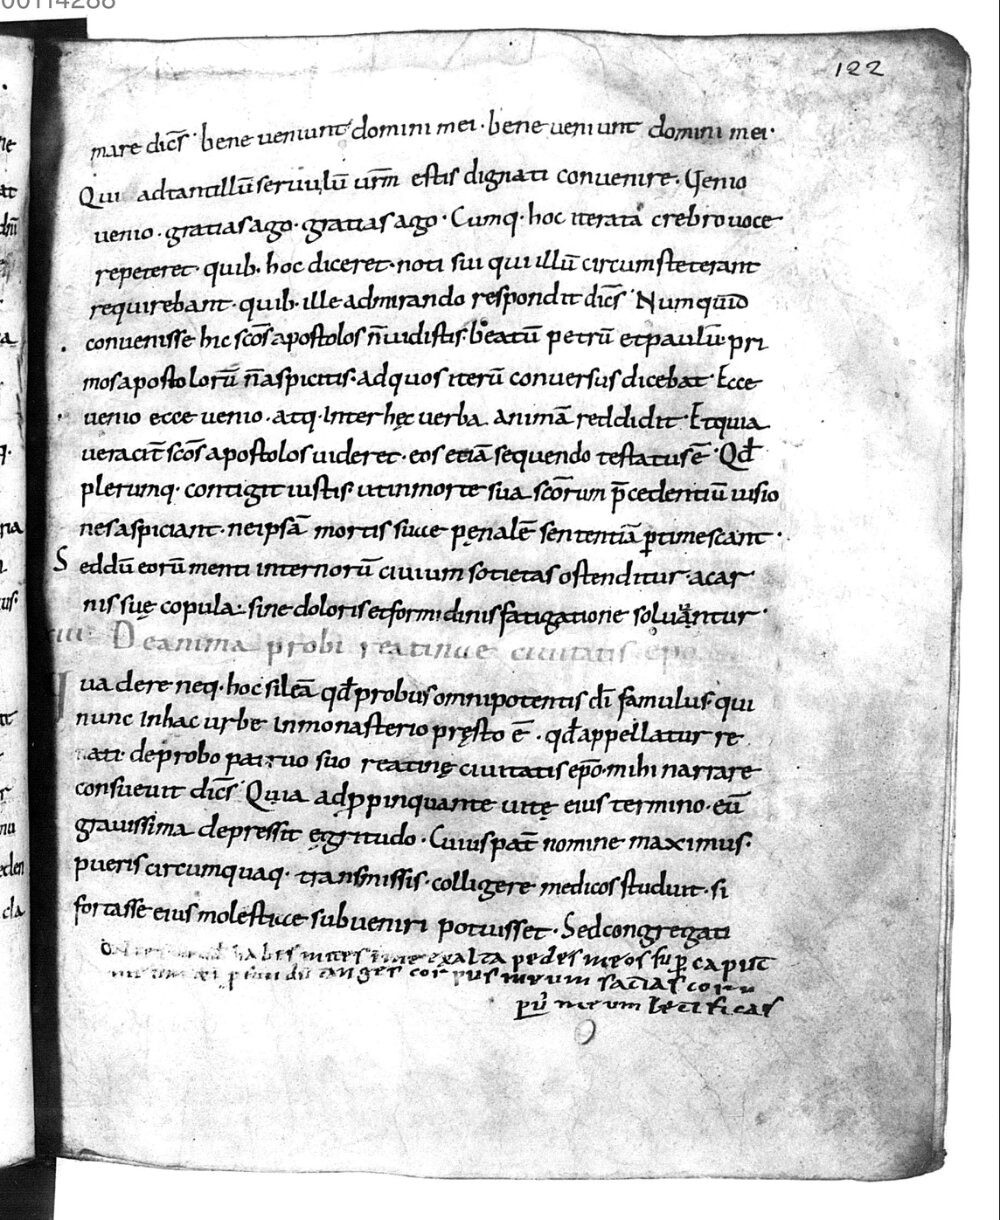 122
mare dic̄s· bene ueniunt domini mei· bene ueniunt domini mei·
Qui ad tantillū seruulū ur̄m estis dignati conuenire. Uenio
uenio· gratias ago· gratias ago· Cumq· hoc iterata crebro uoce
repeteret· quib· hoc diceret· noti sui qui illū circumsteterant
requirebant· quib· ille admirando respondit dic̄s· Numquid
conuenisse hic sc̄os apostolos n̄ uidistis· beatū petrū et paulū· pri
mos apostolorū n̄ aspicitis· ad quos iterū conuersus dicebat· Ecce
uenio ecce uenio· atq· inter hęc uerba animā reddidit· Et quia
ueracit̄ sc̄os apostolos uideret· eos etiā sequendo testatus ē· Qđ
plerumq· contigit iustis ut in morte sua sc̄orum p̄cedentiū uisio
nes aspiciant· ne ipsā mortis suae pęnalē sententiā ꝑtimescant·
Sed dū eorū menti internorū ciuium societas ostenditur· a car
nis suę copula· sine doloris et formidinis fatigatione soluantur·
De anima probi reatinae ciuitatis ep̄o
ua dere neq· hoc sileā qđ probus omnipotentis dī famulus· qui
nunc in hac urbe in monasterio pręsto ē· qđ appellatur re
nati· de probo patruo suo reatinę ciuitatis ep̄o· mihi narrare
consueuit dic̄s· Quia ad ꝓpinquante uitę eius termino· eū
grauissima depressit ęgritudo· Cuius pat̄ nomine maximus·
pueris circumquaq· transmissis· colligere medicos studuit· si
fortasse eius molestiae subueniri potuisset· Sed congregati
habes exalta pedes meos sup̄ caput
meum tanges corpus meum sacias cor
pū meum letificas